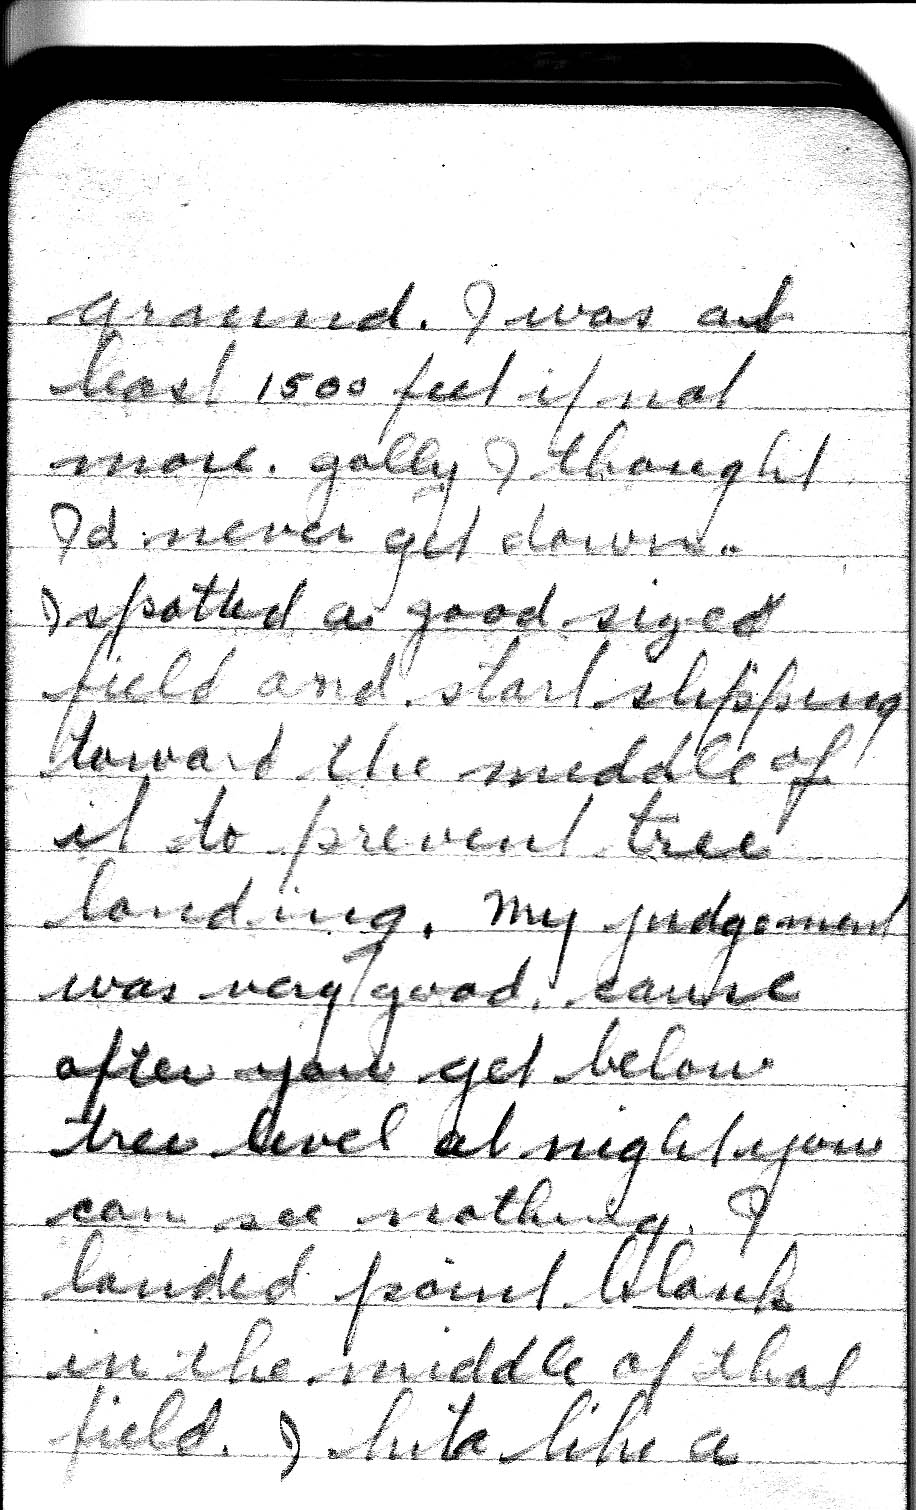 ground. I was at
least 1500 feet if not
more. golly I thought
I'd never get down.
I spotted a good sized
field and start slipping
toward the middle of
it to prevent tree
landing. My judgement
was very good, cause
after you get below
tree level at night you
can see nothing. I
landed point blank
in the middle of that
field. I hite like a